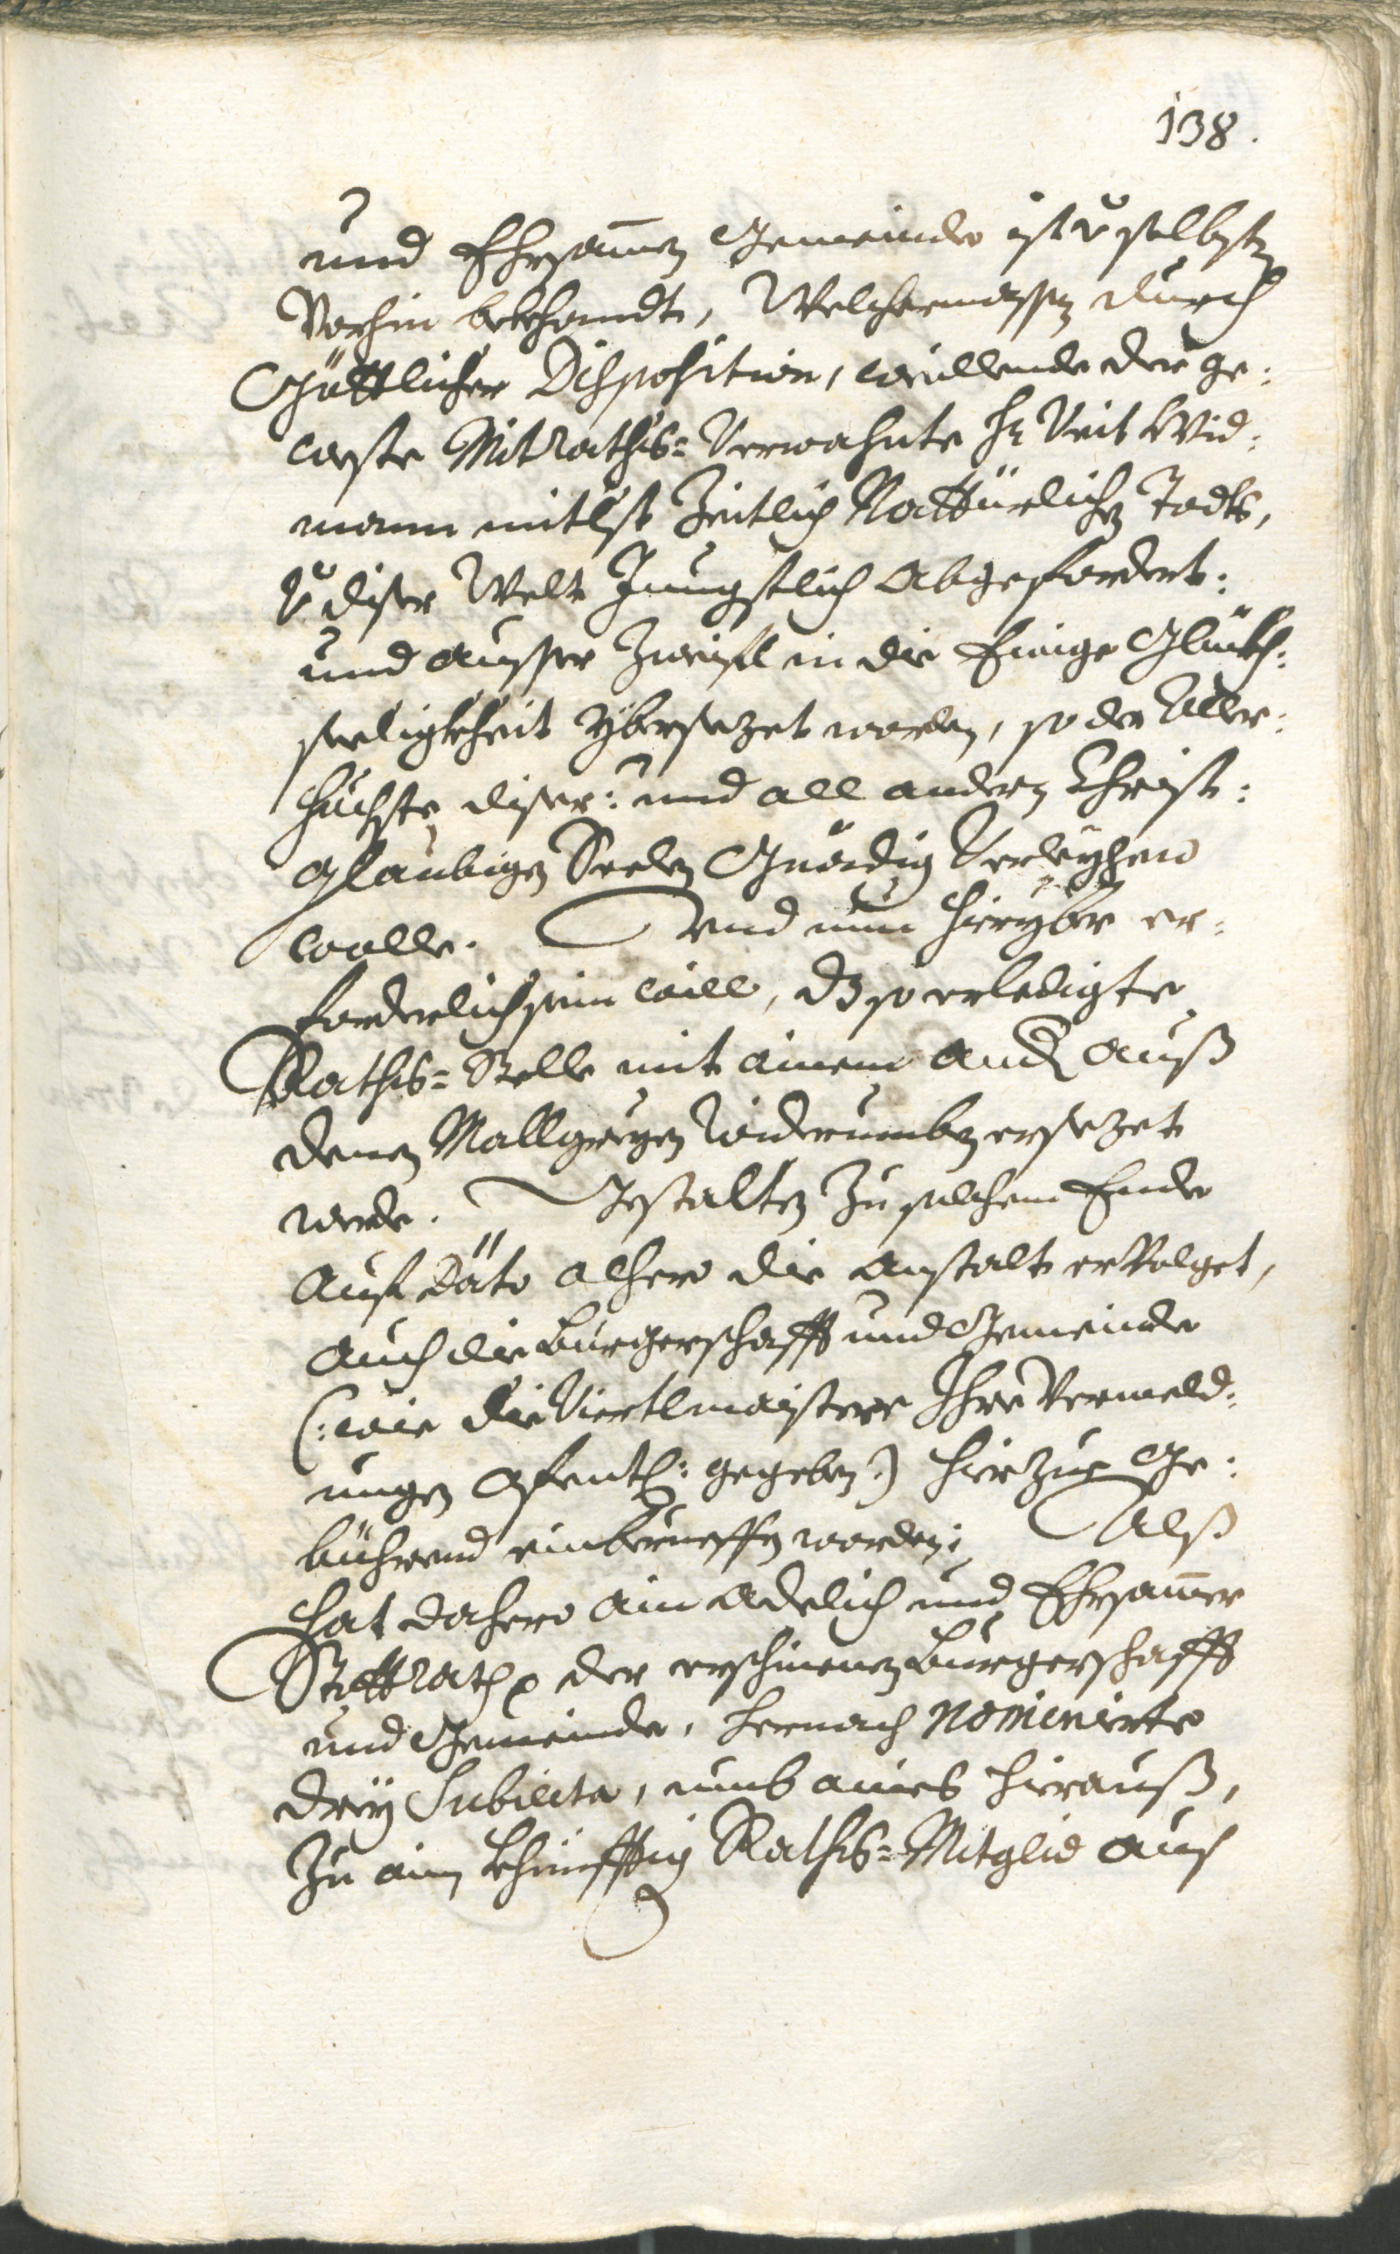 138.
und Ehrsamen Gemeinde ist v̈ selbsten
Vorhin bekhandt, Welchermassen durch
Göttlicher Disposition, weillendt der ge:
weste Mitraths= Verwahnte Hr: Veit Wid:
mann mitlst Zeitlich Nattürlichen Todts,
v̈: diser Welt Jüngstlich Abgefordert:
und ausser Zweifl in die Ewige Glückh:
seeligkheit ÿbersezet worden, so der Aller:
höchste diser: und all andern Christ:
glaubigen Seelen Gnädig Verleÿhen
wolle. Und nun hierÿber er:
forderlich sein will, dz so erledigte
Raths= Stelle mit ainem And auß
denen widerumben ersezet
werde. Gestalten Zu solchem Ende
Auf Dato alhero die Anstalt ervolget,
Auch die Burgerschafft und Gemeinde
(: wie die Viertlmaistere Ihre Vermeld:
ungen ofentl: gegeben :) hierzue Ge:
bührend einberueffen worden; Alß
hat dahero ain Adelich und Ehrsamer
Stattrath der erschinenen Burgerschafft
und Gemeinde, hernach nominierte
dreÿ Subiecta, umb aines hierauß,
Zu aim khönfftig Raths= Mitglid auf